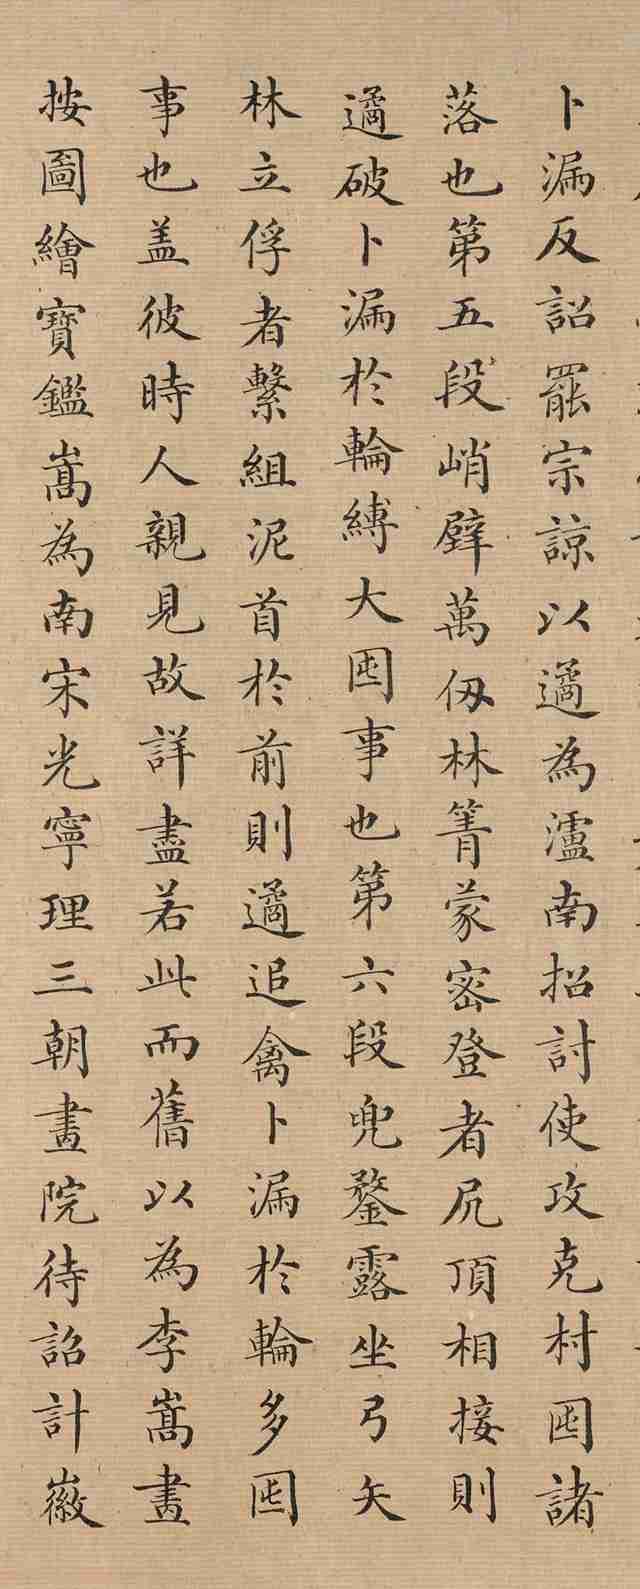 卜漏反詔罷宗諒以遹為瀘南招討使攻克村囤諸
落也第五段峭壁萬仭林箐蒙密登者尻頂相接則
遹破卜漏於輪縛大囤事也第六段兜鍪露坐弓矢
林立俘者繫組泥首於前則遹追禽卜漏於輪多囤
事也盖彼時人親見故詳盡若此而舊以為李嵩畫
按圖繪寶鑑嵩為南宋光寧理三朝畫院待詔計徽